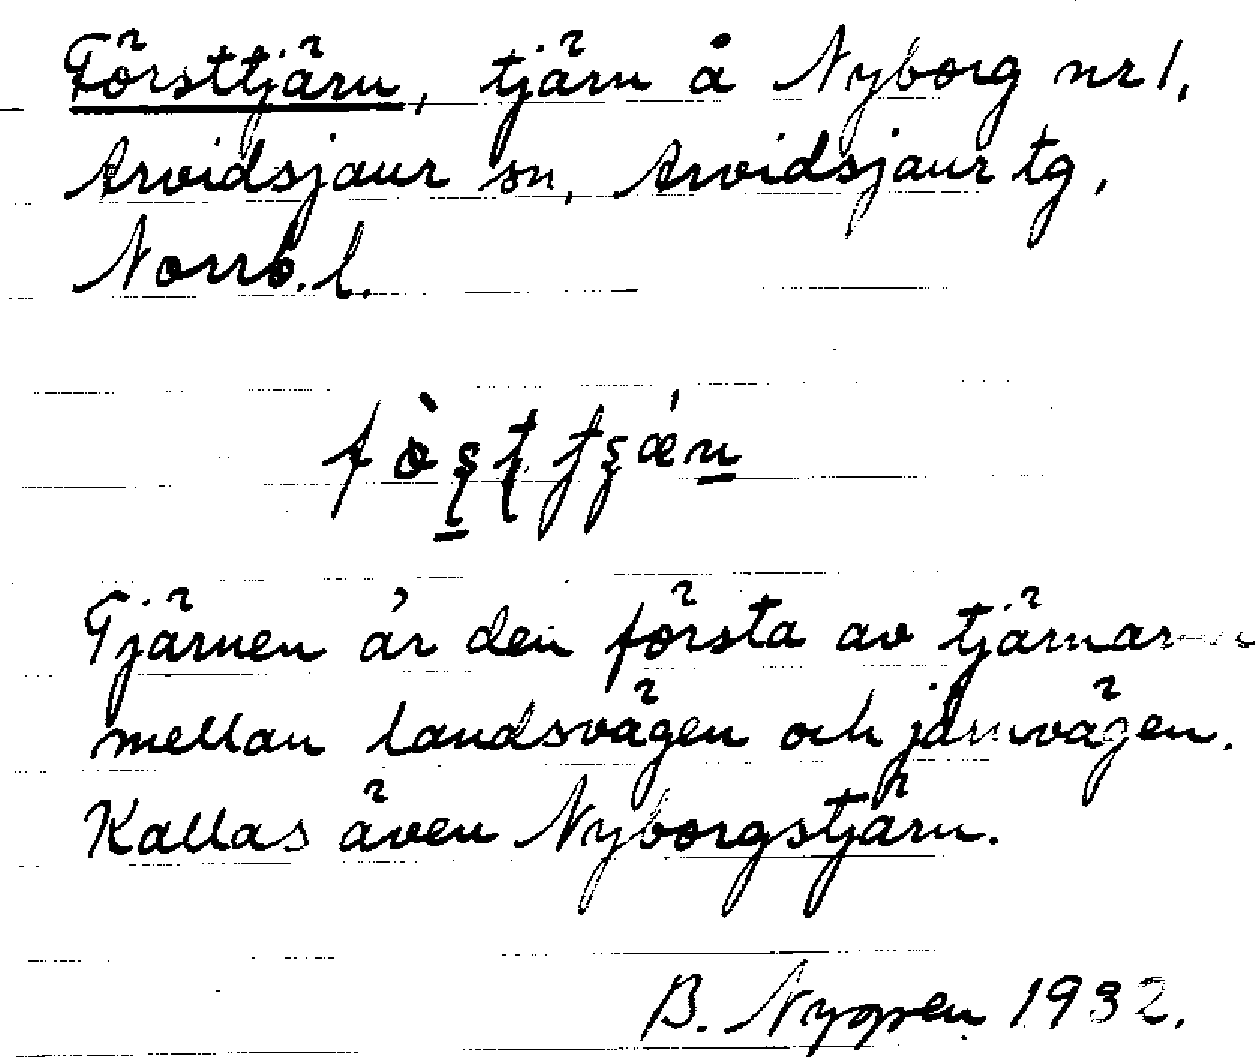 Försttjärn, tjärn å Nyborg nr 1,
Arvidsjaur sn, Arvidsjaur tg,
Norrb. l.
Tjärnen är den första av tjärnarna
mellan landsvägen och järnvägen.
Kallas även Nyborgstjärn.
B. Nygren 1932.